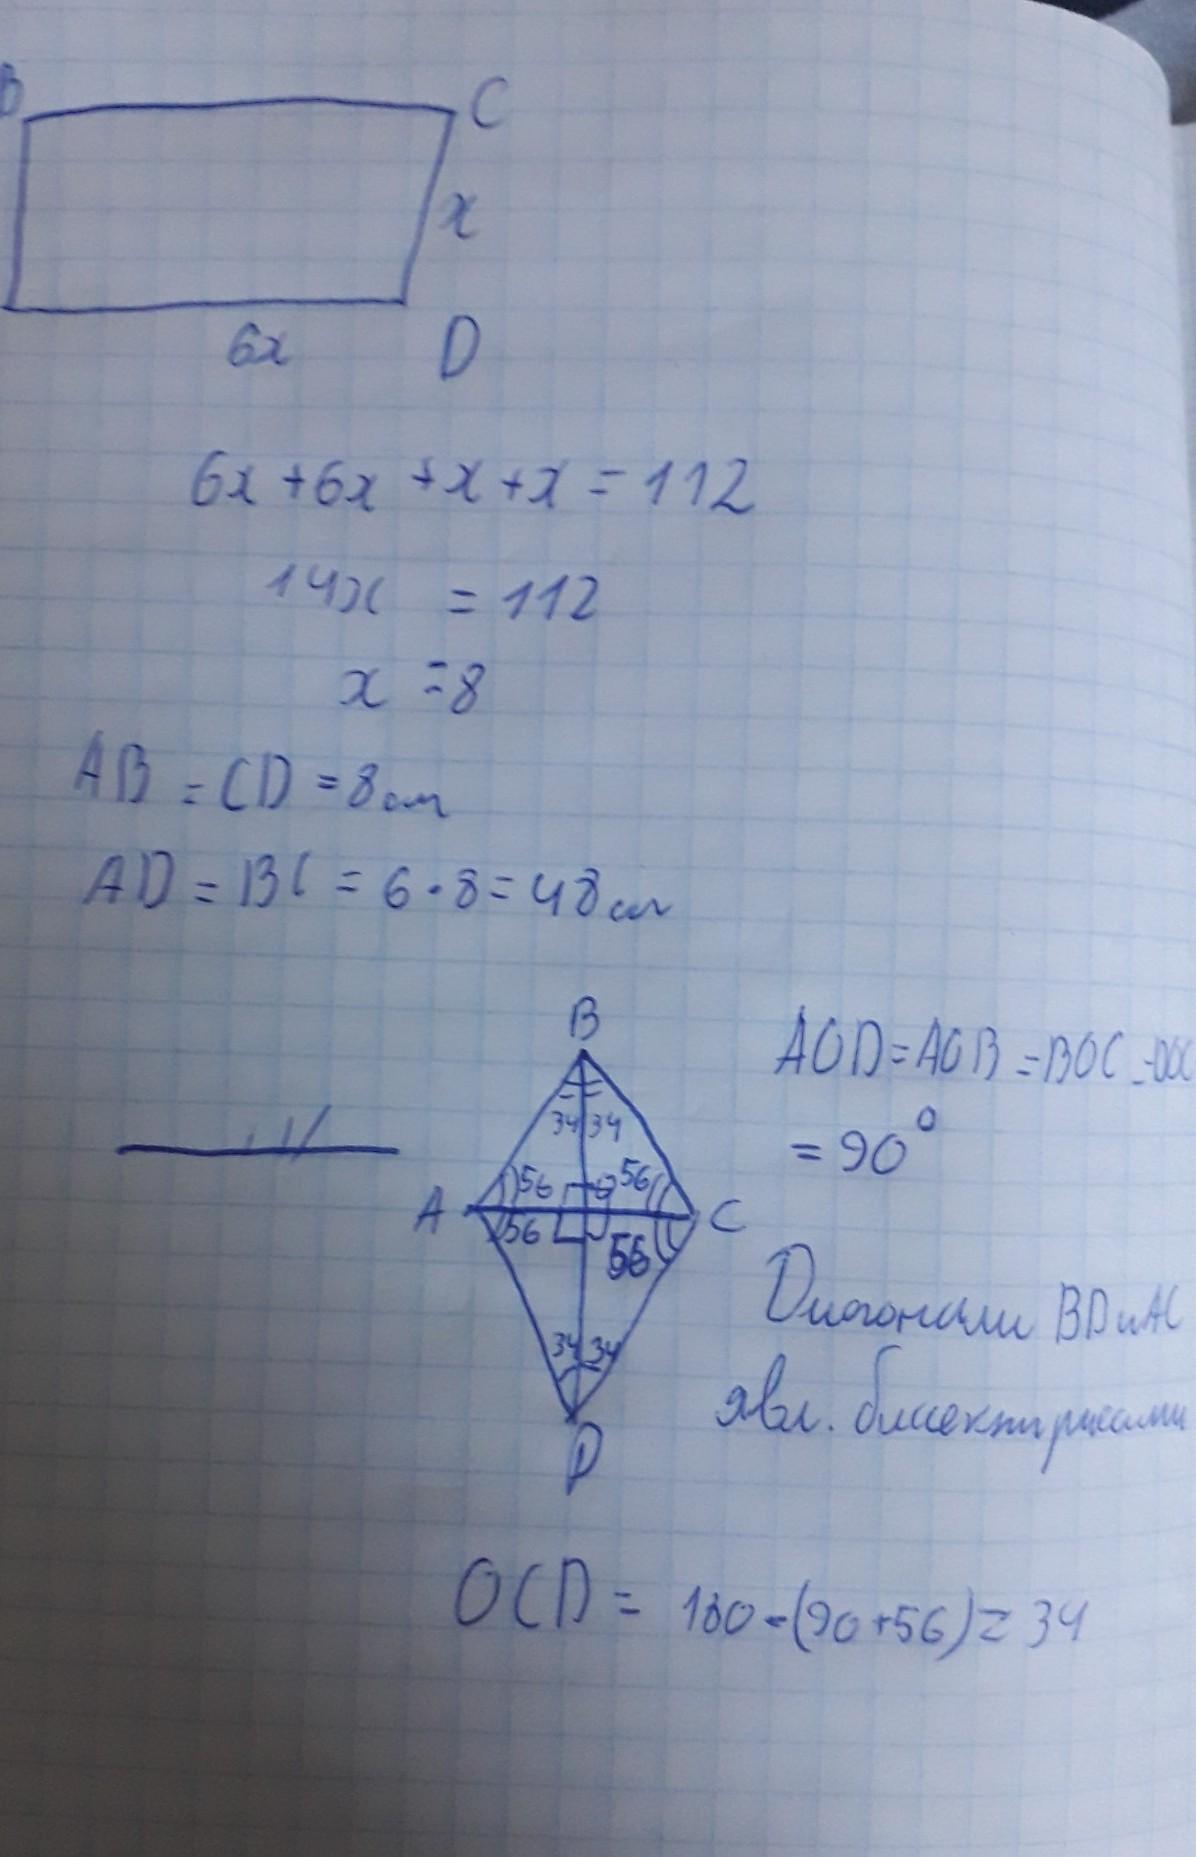 B C
x
6x D
6x + 6x + x + x = 112
14x = 112
x = 8
AB = CD = 8см
AD = BC = 6 · 8 = 48см
B
AOD = AOB = BOC = DOC
= 90°
34 34
56 O 56
A C
56 56
Диагонали BD и AC
34 34
явл. биссектрисами
D
OCD = 180 - (90 + 56) = 34